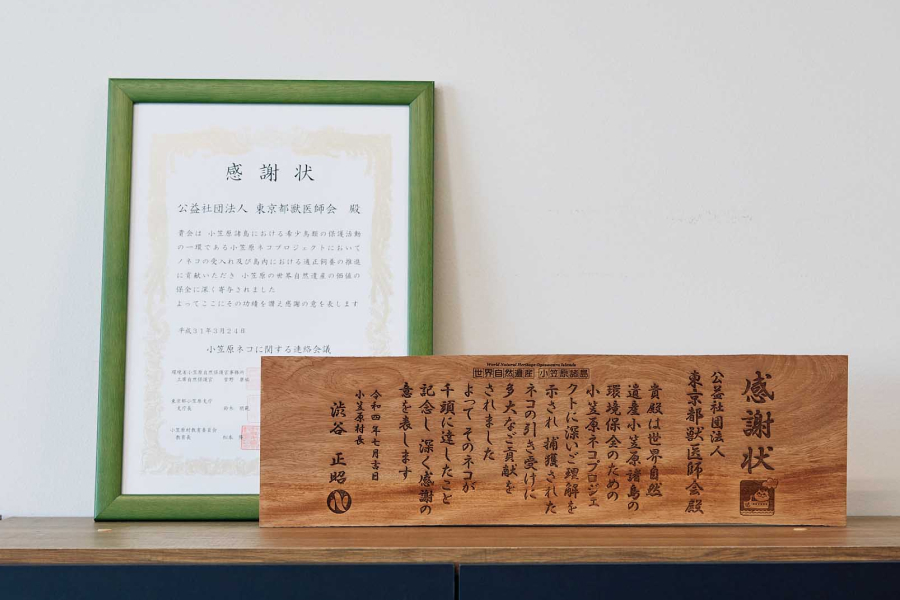 感謝状
公益社団法人 東京都獣医師会 殿
貴会は 小笠原諸島における希少鳥類の保護活動
の一環である小笠原ネコプロジェクトにおいて
ノネコの受入れ及び島内における適正飼養の推進
に貢献いただき 小笠原の世界自然遺産の価値の
保全に深く寄与されました
よってここにその功績を讃え感謝の意を表します
平成31年3月24日
小笠原ネコに関する連絡会議
環境省小笠原自然保護官事務所
上席自然保護官
東京都小笠原支庁
支庁長
小笠原村教育委員会
教育長
World Natural Heritage Ogasawara Islands
世界自然遺産 小笠原諸島
感謝状
公益社団法人
東京都獣医師会殿
貴殿は世界自然
遺産小笠原諸島の
環境保全のための
小笠原ネコプロジェ
クトに深いご理解を
示され 捕獲された
ネコの引き受けに
多大なご貢献を
されました
よってそのネコが
千頭に達したこと
記念し 深く感謝の
意を表します
令和四年七月吉日
小笠原村長
渋谷 正昭